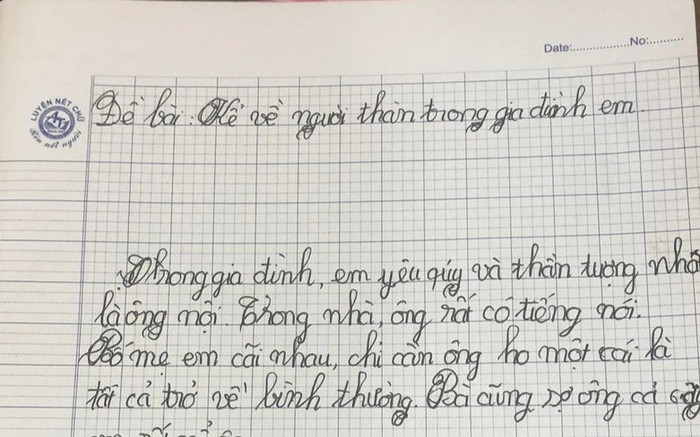 Date:.................No:..........
LUYỆN NÉT CHỮ
Rèn nết người
Đề bài: Kể về người thân trong gia đình em.
Trong gia đình, em yêu quý và thần tượng nhất
là ông nội. Trong nhà, ông rất có tiếng nói.
Bố mẹ em cãi nhau, chỉ cần ông ho một cái là
tất cả trở về bình thường. Bà cũng sợ ông cả